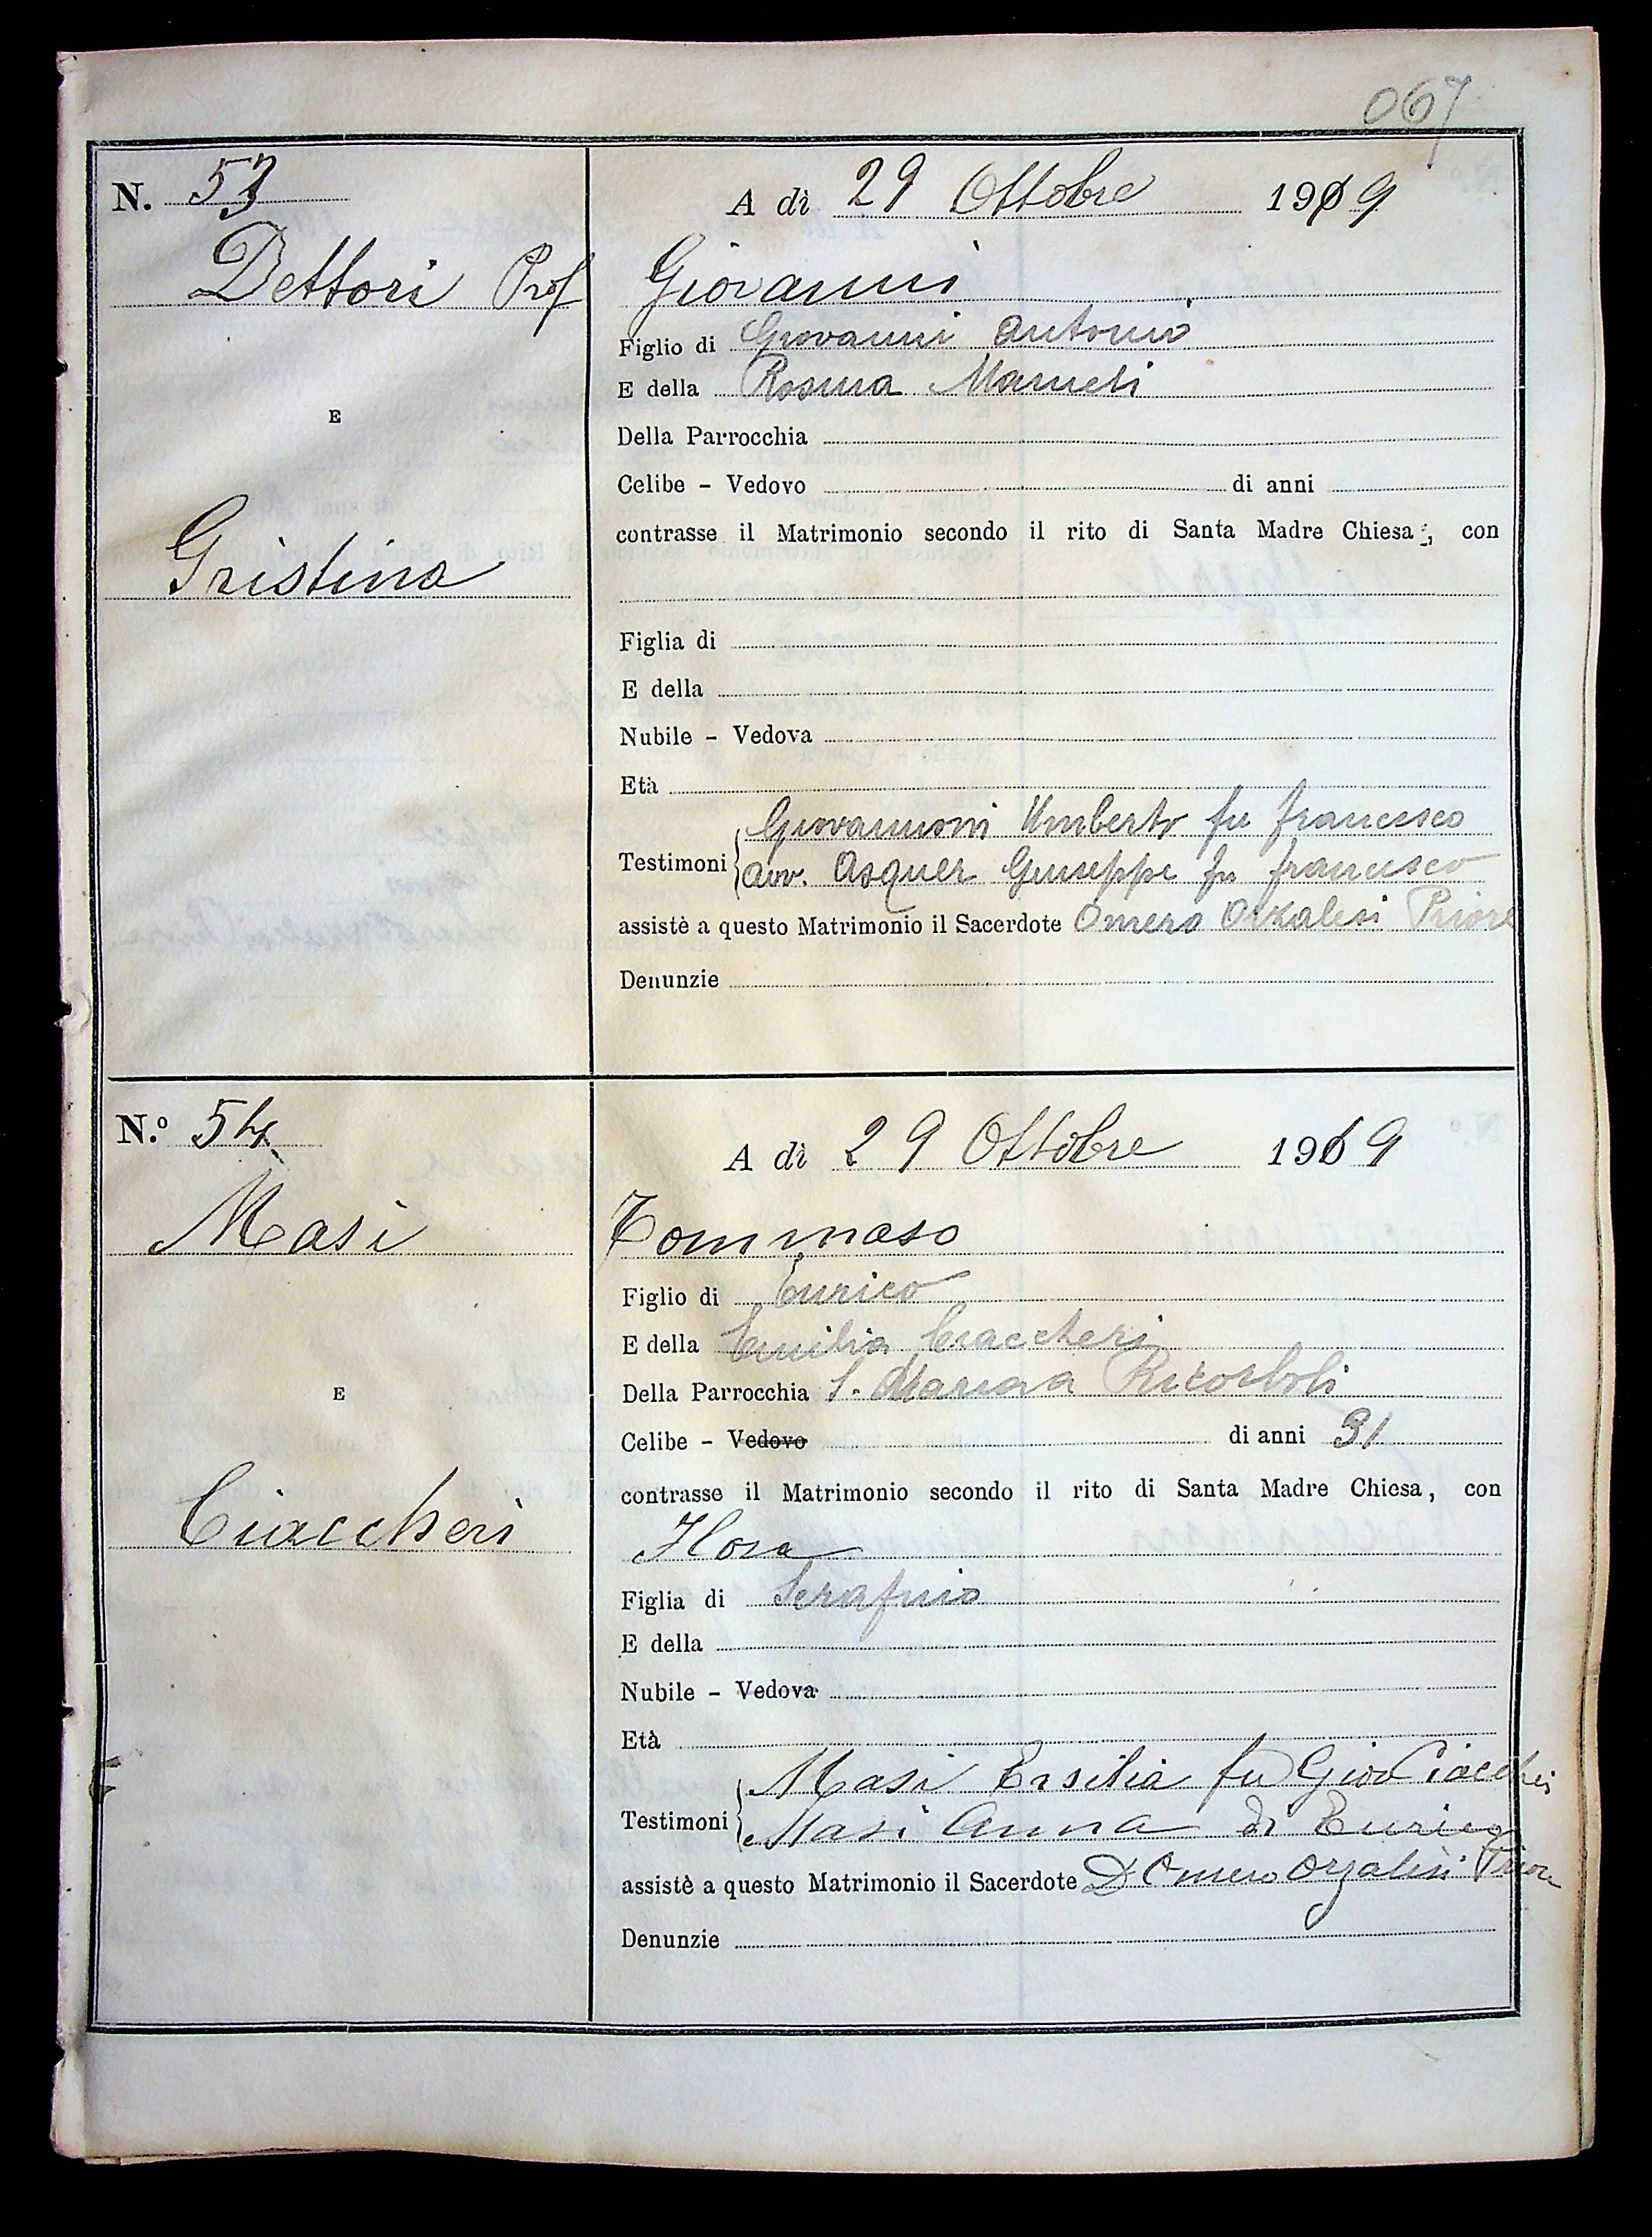 067
N. 53
A dì 29 Ottobre 1919
Dettori Prof
Giovanni
Figlio di Giovanni Antonio
E della Rosina Mameli
E
Della Parrocchia
Celibe - Vedovo di anni
contrasse il Matrimonio secondo il rito di Santa Madre Chiesa, con
Gristina
Figlia di
E della
Nubile - Vedova
Età
Giovannoni Umberto fu Francesco
Testimoni
avv. Asquer Giuseppe fu Francesco
assistè a questo Matrimonio il Sacerdote Omero Orzalesi Priore
Denunzie
N.º 54
A dì 29 Ottobre 1919
Masi
Tommaso
Figlio di Enrico
E della Emilia Ciaccheri
Della Parrocchia S. Maria a Ricorboli
E
Celibe - Vedovo di anni 31
contrasse il Matrimonio secondo il rito di Santa Madre Chiesa, con
Ciaccheri
Flora
Figlia di Serafino
E della
Nubile - Vedova
Età
Masi Ersilia fu Giov Ciaccheri
Testimoni
Masi Anna di Enrico
assistè a questo Matrimonio il Sacerdote D Omero Orzalesi Priore
Denunzie